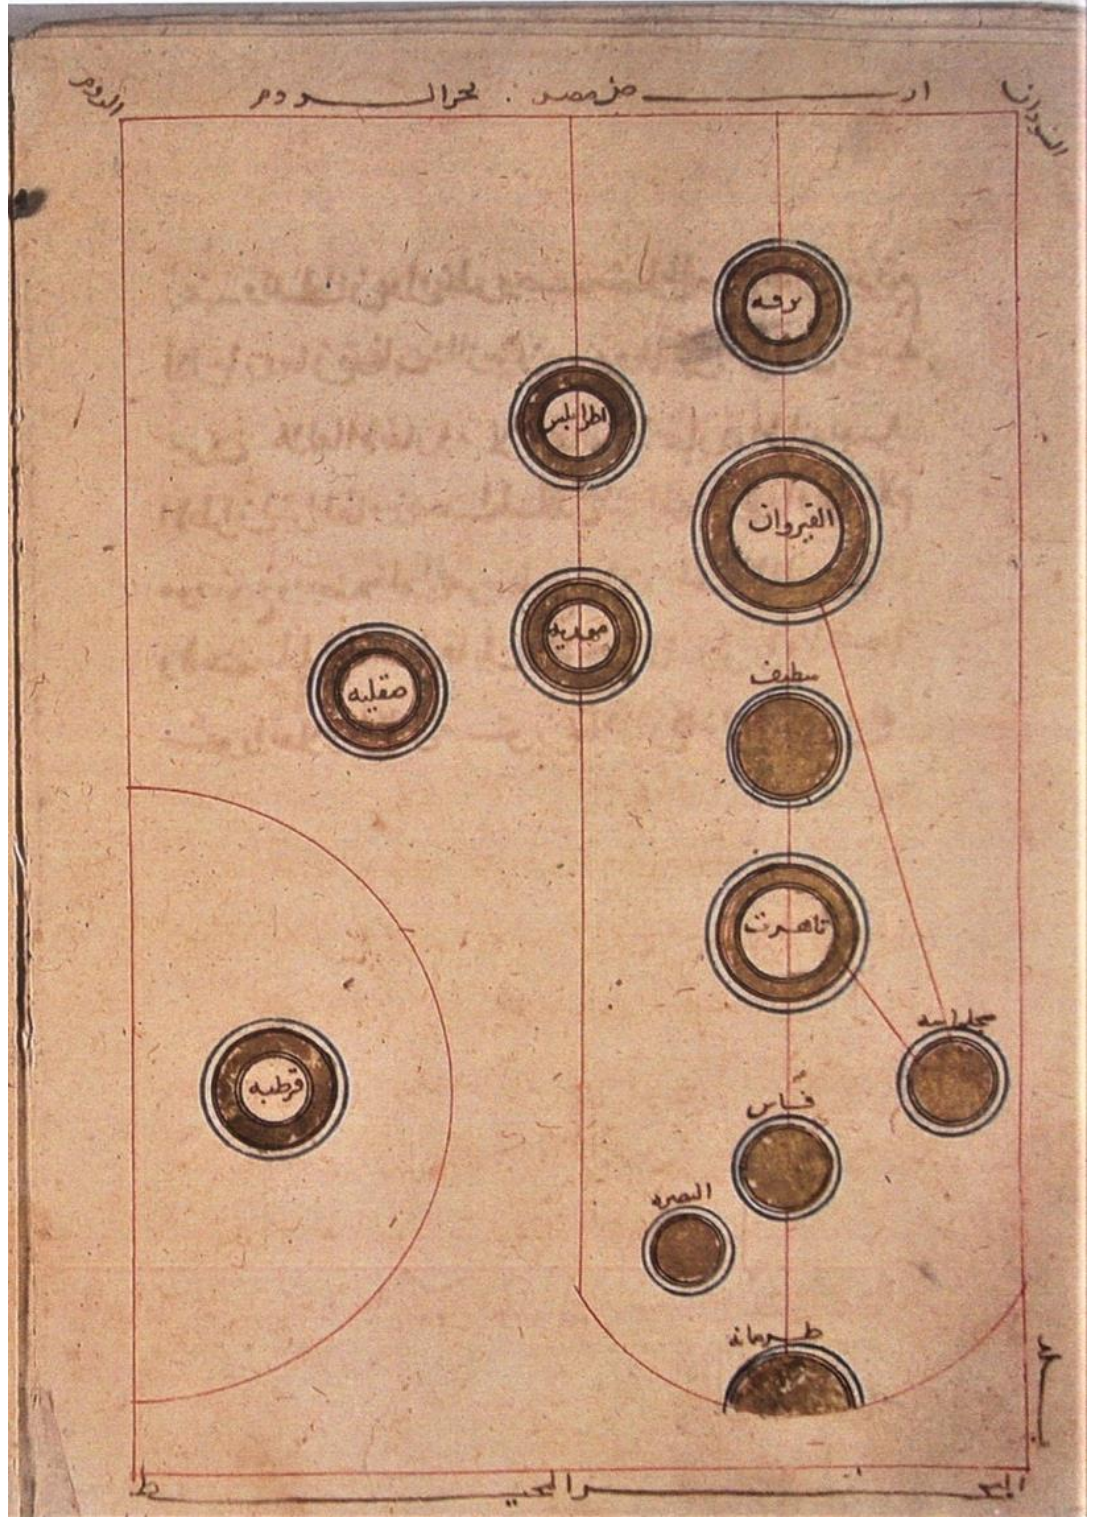 السودان
ارض مصر
بحر الروم
الروم
برقه
اطرابلس
القيروان
مهديه
سطيف
صقليه
تاهرت
سجلماسه
قرطبه
فاس
البصره
البحر المحيط